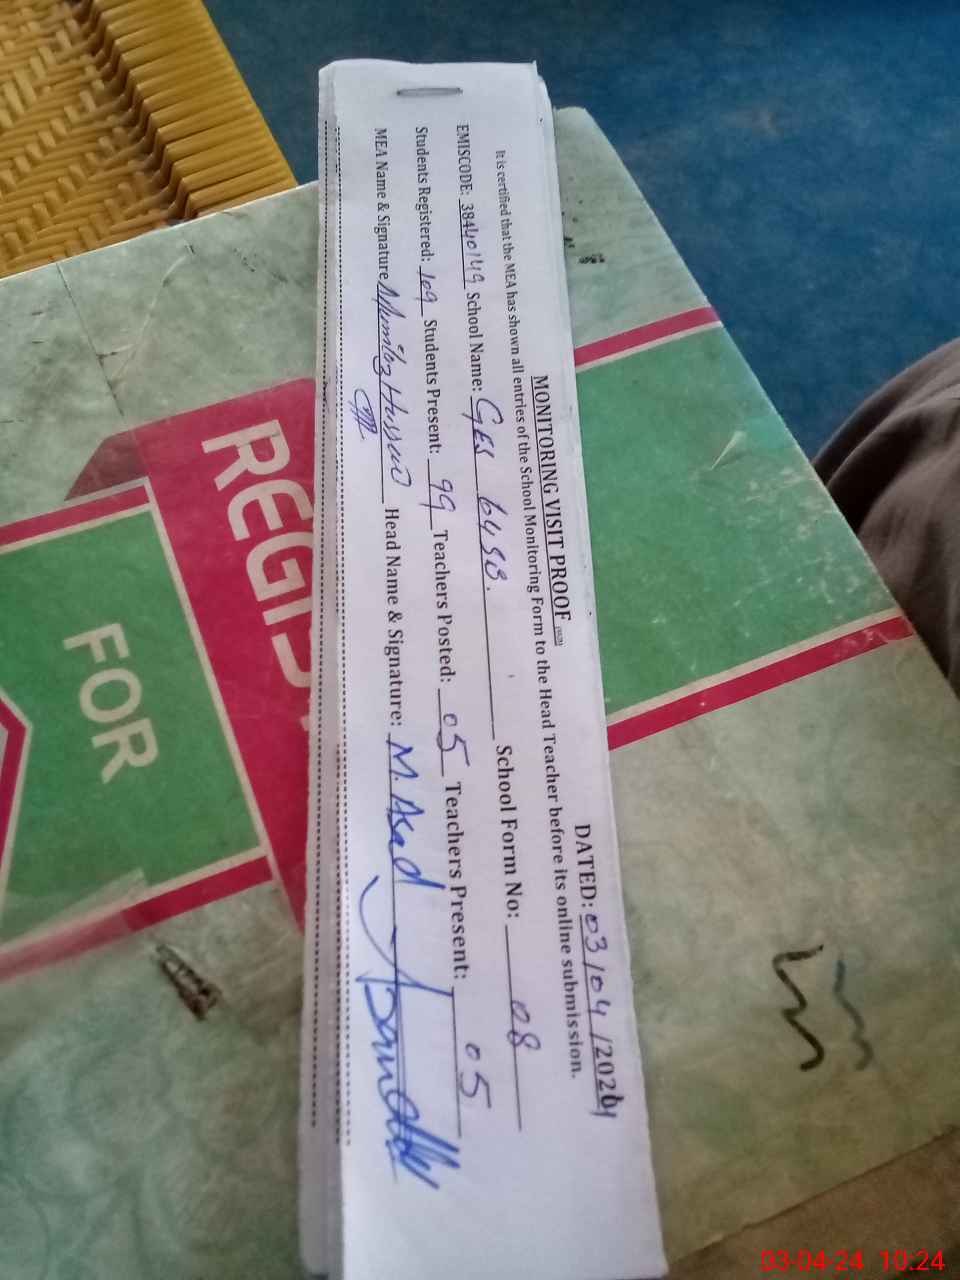 MONITORING VISIT PROOF
DATED: 03/04/2024
It is certified that the MEA has shown all entries of the School Monitoring Form to the Head Teacher before its online submission.
EMISCODE: 38440149 School Name: GES 64 SB. School Form No: 08
Students Registered: 109 Students Present: 99 Teachers Posted: 05 Teachers Present: 05
MEA Name & Signature Mumtaz Hussain Head Name & Signature: M. Asad
REGIS
FOR
03-04-24 10:24